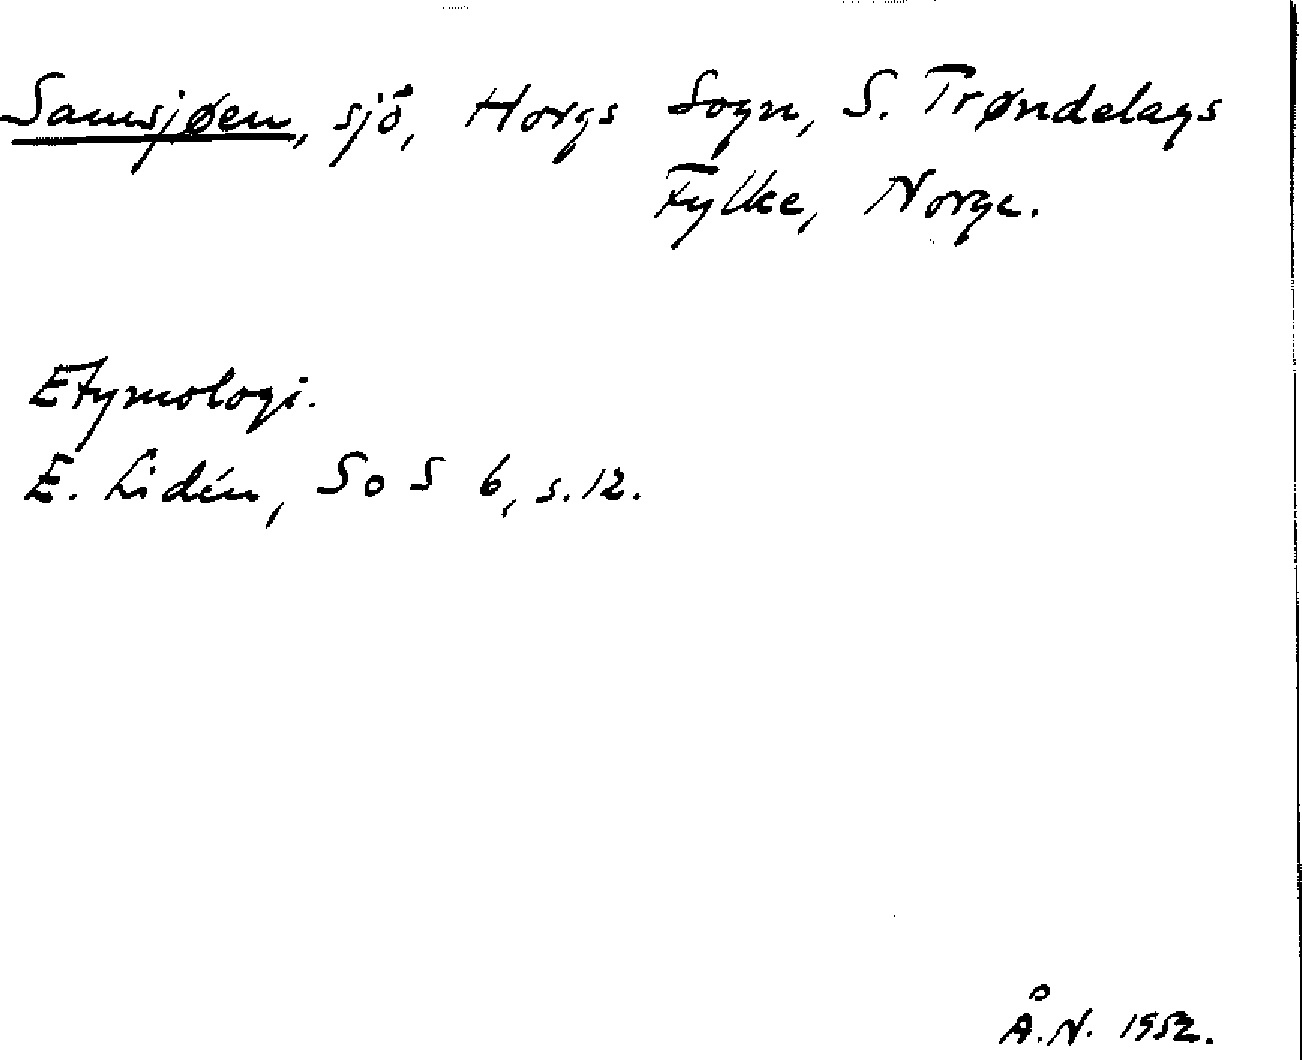 Samsjøen, sjö, Horgs Sogn, S. Trøndelags
Fylke, Norge.
Etymologi.
E. Lidén, SoS 6, s. 12.
Å.N. 1952.